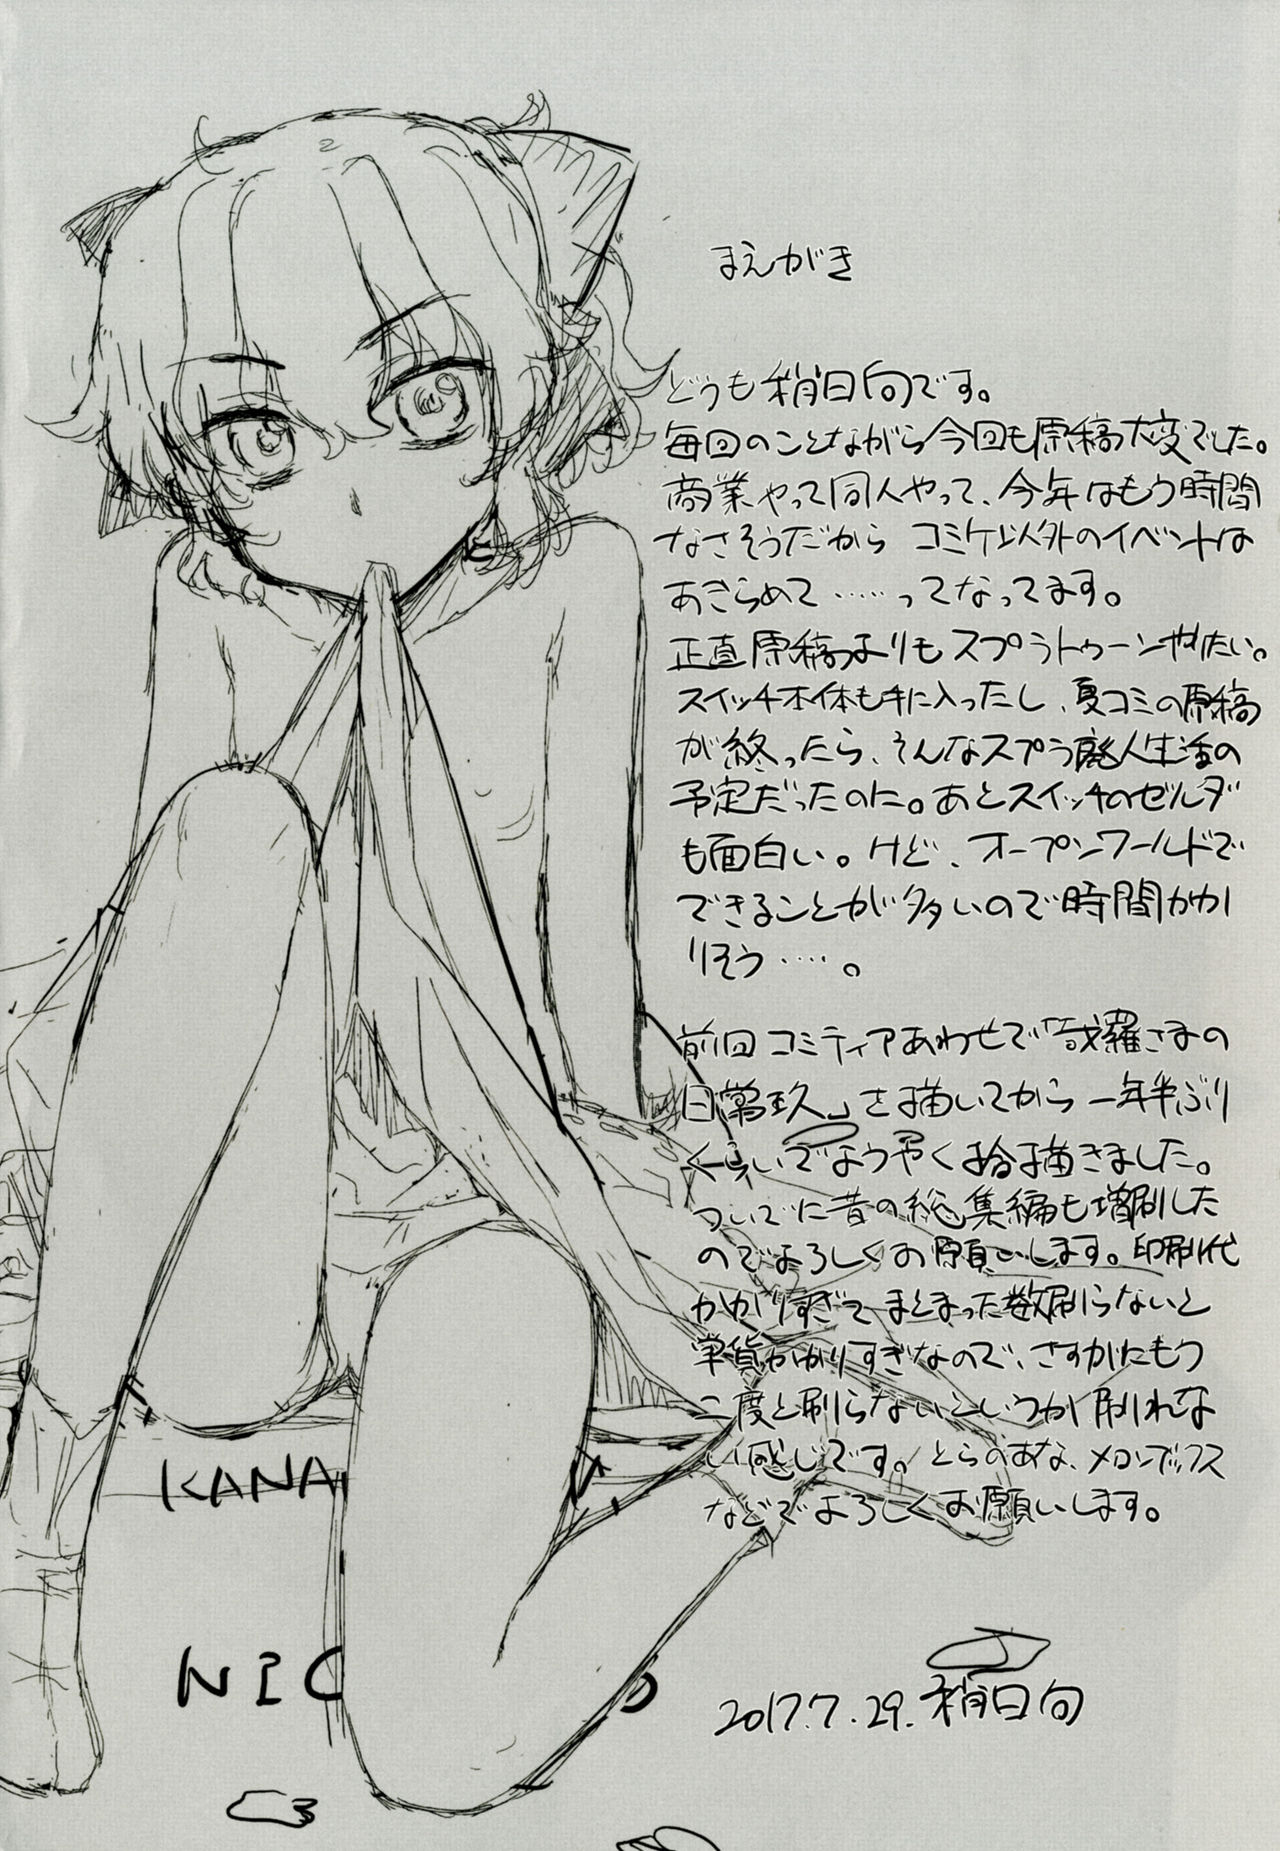 まえがき
どうも稍日向です。
毎回のことながら今回も原稿大変でした。
商業やって同人やって、今年はもう時間
なさそうだから コミケ以外のイベントは
あきらめて……ってなってます。
正直原稿よりもスプラトゥーンやりたい。
スイッチ本体も手に入ったし、夏コミの原稿
が終ったら、そんなスプラ廃人生活の
予定だったのに。あとスイッチのゼルダ
も面白い。けど、オープンワールドで
できることが多いので時間がか
りそう……。
前回コミティアあわせで「哉羅さまの
日常玖」を描いてから一年半ぶり
くらいでようやく拾描きました。
ついでに昔の総集編も増刷した
のでよろしくお願いします。印刷代
かかりすぎてまとまった数刷らないと
単価かかりすぎなので、さすがにもう
二度と刷らないというか刷れな
い感じです。とらのあな、メロンブックス
などでよろしくお願いします。
KANA
NIC
2017.7.29.稍日向